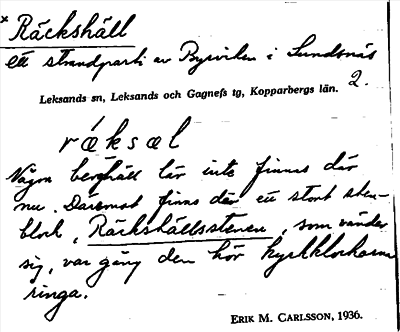 × Räckshäll
ett strandparti av Byrviken i Sundsnäs
2.
Leksands sn, Leksands och Gagnefs tg, Kopparbergs län.
rǽksæl
Någon berghäll lär inte finnas där
nu. Däremot finns där ett stort sten-
block, Räckshällsstenen, som vänder
sig, var gång den hör kyrkklockorna
ringa.
ERIK M. CARLSSON, 1936.